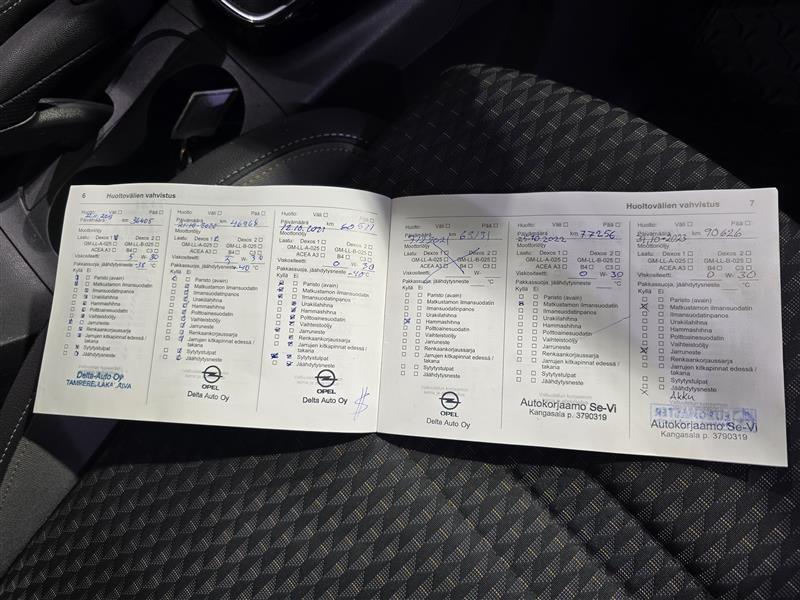 6 Huoltovälien vahvistus
Huolto: Väli Pää
Päivämäärä km 36405
Moottoriöljy
Laatu: Dexos 1 Dexos 2
GM-LL-A-025 GM-LL-B-025
ACEA A3 B4 C3
Viskositeetti: 5 W- 30
Pakkassuoja, jäähdytysneste °C
Kyllä Ei
Paristo (avain)
Matkustamon ilmansuodatin
Ilmansuodatinpanos
Urakilahihna
Hammashihna
Polttoainesuodatin
Vaihteistoöljy
Jarruneste
Renkaankorjaussarja
Jarrujen kitkapinnat edessä /
takana
Sytytystulpat
Jäähdytysneste
Delta-Auto Oy
Huolto: Väli Pää
Päivämäärä 21.10.2020 km 46968
Moottoriöljy
Laatu: Dexos 1 Dexos 2
GM-LL-A-025 GM-LL-B-025
ACEA A3 B4 C3
Viskositeetti: W-
Pakkassuoja, jäähdytysneste -40 °C
Kyllä Ei
Paristo (avain)
Matkustamon ilmansuodatin
Ilmansuodatinpanos
Urakilahihna
Hammashihna
Polttoainesuodatin
Vaihteistoöljy
Jarruneste
Renkaankorjaussarja
Jarrujen kitkapinnat edessä /
takana
Sytytystulpat
Jäähdytysneste
OPEL
Delta Auto Oy
Huolto: Väli Pää
Päivämäärä 12.10.2021 km 60511
Moottoriöljy
Laatu: Dexos 1 Dexos 2
GM-LL-A-025 GM-LL-B-025
ACEA A3 B4 C3
Viskositeetti: 0 W- 30
Pakkassuoja, jäähdytysneste -40 °C
Kyllä Ei
Paristo (avain)
Matkustamon ilmansuodatin
Ilmansuodatinpanos
Urakilahihna
Hammashihna
Polttoainesuodatin
Vaihteistoöljy
Jarruneste
Renkaankorjaussarja
Jarrujen kitkapinnat edessä /
takana
Sytytystulpat
Jäähdytysneste
OPEL
Delta Auto Oy
Huoltovälien vahvistus 7
Huolto: Väli Pää
Päivämäärä km 63131
Moottoriöljy
Laatu: Dexos 1 Dexos 2
GM-LL-A-025 GM-LL-B-025
ACEA A3 B4 C3
Viskositeetti: W-
Pakkassuoja, jäähdytysneste °C
Kyllä Ei
Paristo (avain)
Matkustamon ilmansuodatin
Ilmansuodatinpanos
Urakilahihna
Hammashihna
Polttoainesuodatin
Vaihteistoöljy
Jarruneste
Renkaankorjaussarja
Jarrujen kitkapinnat edessä /
takana
Sytytystulpat
Jäähdytysneste
OPEL
Delta Auto Oy
Huolto: Väli Pää
Päivämäärä 25.10.2022 km 77256
Moottoriöljy
Laatu: Dexos 1 Dexos 2
GM-LL-A-025 GM-LL-B-025
ACEA A3 B4 C3
Viskositeetti: 0 W- 30
Pakkassuoja, jäähdytysneste °C
Kyllä Ei
Paristo (avain)
Matkustamon ilmansuodatin
Ilmansuodatinpanos
Urakilahihna
Hammashihna
Polttoainesuodatin
Vaihteistoöljy
Jarruneste
Renkaankorjaussarja
Jarrujen kitkapinnat edessä /
takana
Sytytystulpat
Jäähdytysneste
Autokorjaamo Se-Vi
Kangasala p. 3790319
Huolto: Väli Pää
Päivämäärä 31.10.2023 km 90626
Moottoriöljy
Laatu: Dexos 1 Dexos 2
GM-LL-A-025 GM-LL-B-025
ACEA A3 B4 C3
Viskositeetti: 0 W- 30
Pakkassuoja, jäähdytysneste °C
Kyllä Ei
Paristo (avain)
Matkustamon ilmansuodatin
Ilmansuodatinpanos
Urakilahihna
Hammashihna
Polttoainesuodatin
Vaihteistoöljy
Jarruneste
Renkaankorjaussarja
Jarrujen kitkapinnat edessä /
takana
Sytytystulpat
Jäähdytysneste
Akku
Autokorjaamo Se-Vi
Kangasala p. 3790319